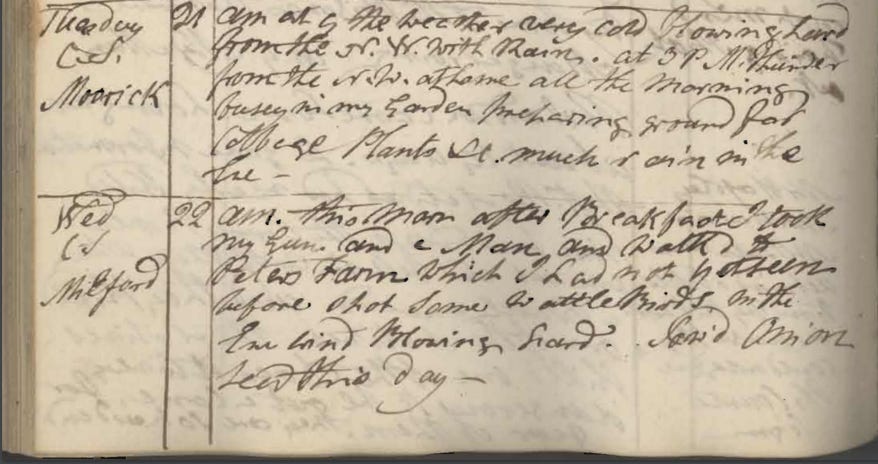 Tuesday 21 am at 9 the weather very cold Blowing hard
C.S. from the N. W. with Rain. at 3 P M. thunder
Moorick from the N.W. at home all the Morning
busey in my Garden preparing ground for
Cabbege Plants &c. much rain in the
Eve –
Wed 22 am. this Morn after Breakfast I took
CS my Gun and a Man and walk'd to
Milford Peters Farm which I had not yet seen
before shot some Wattle Birds, in the
Eve wind Blowing hard. Sow'd Onion
seed this day –